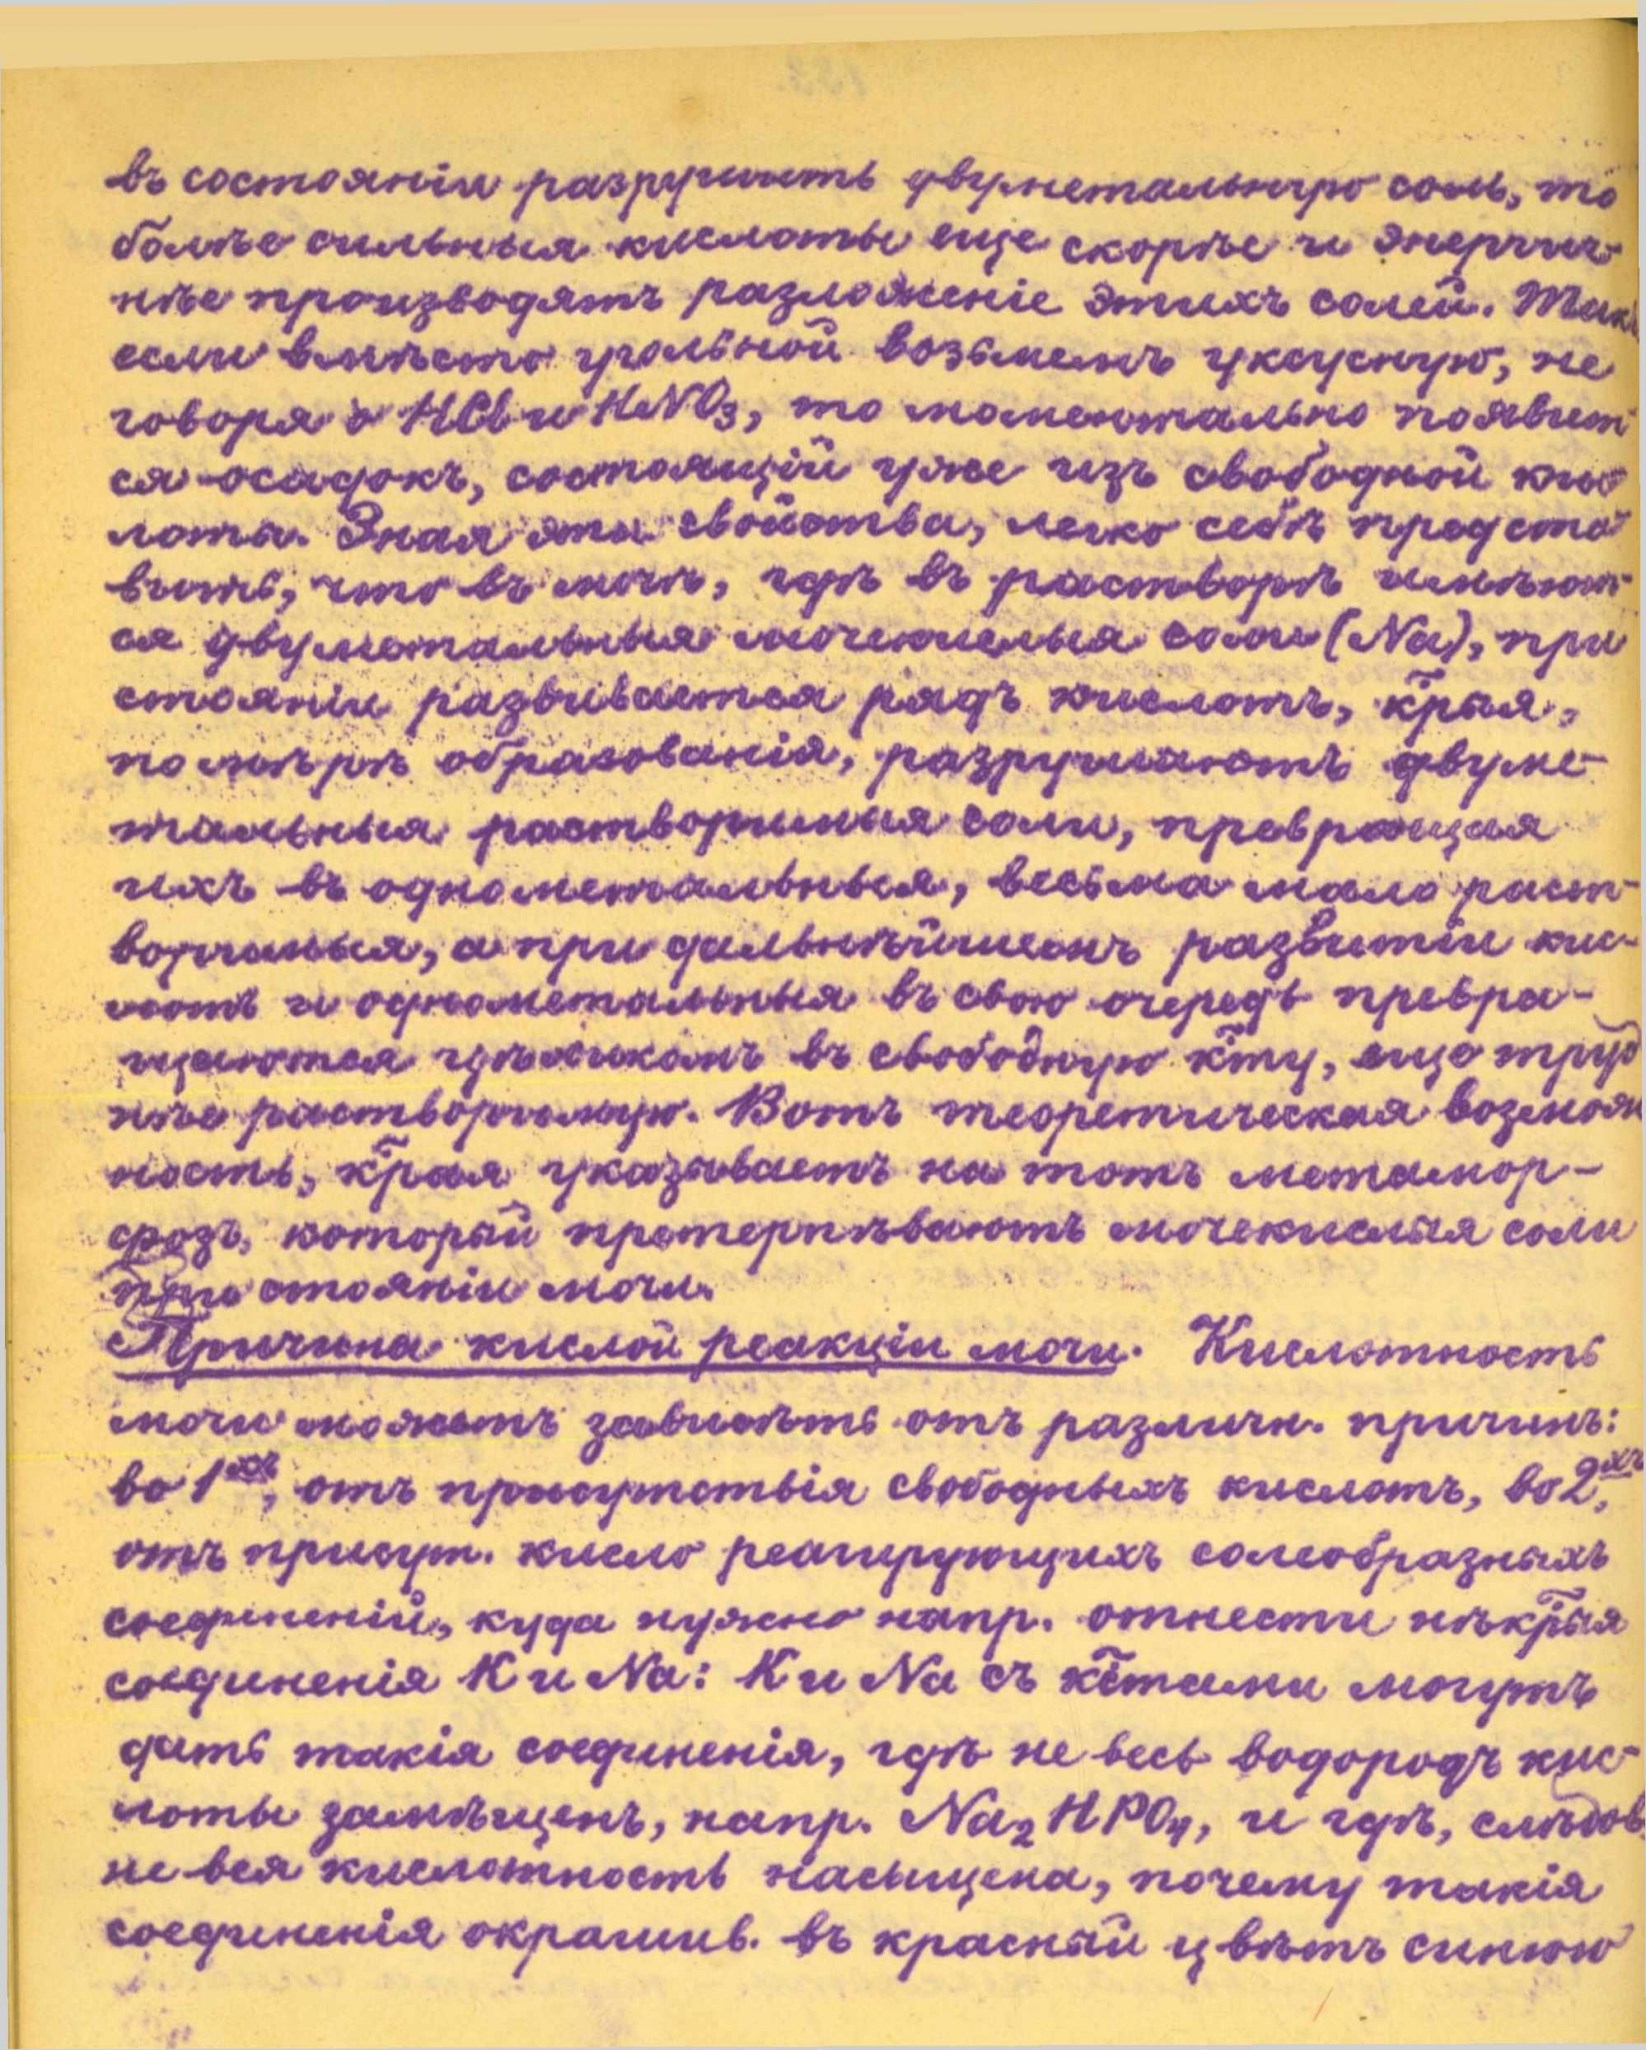 въ состоянiи разрушить двуметальную соль, то
болѣе сильныя кислоты еще скорѣе и энергич-
нѣе производятъ разложенiе этихъ солей. Такъ
если вмѣсто угольной возьмемъ уксусную, не
говоря о HCl и HNO3, то моментально появит-
ся осадокъ, состоящiй уже изъ свободной кис-
лоты. Зная эти свойства, легко себѣ предста-
вить, что въ мочѣ, гдѣ въ растворѣ имѣют-
ся двуметальныя мочекислыя соли (Na), при
стоянiи развивается рядъ кислотъ, к̃рыя,
по мѣрѣ образованiя, разрушаютъ двуме-
тальныя растворимыя соли, превращая
ихъ въ однометальныя, весьма мало раст-
воримыя, а при дальнѣйшемъ развитiи кис-
лотъ и однометальныя въ свою очередь превра-
щаются цѣликомъ въ свободную к̃ту, еще труд
нѣе растворимую. Вотъ теоретическая возмож
ность, к̃рая указываетъ на тотъ метамор-
фозъ, который претерпѣваютъ мочекислыя соли
при стоянiи мочи.
Причина кислой реакцiи мочи. Кислотность
мочи можетъ зависѣть отъ различн. причинъ:
во 1хъ, отъ присутствiя свободныхъ кислотъ, во 2хъ,
отъ присут. кисло реагирующихъ солеобразныхъ
соединенiй, куда нужно напр. отнести нѣк̃рыя
соединенiя K и Na: K и Na съ к̃тами могутъ
дать такiя соединенiя, гдѣ не весь водородъ кис-
лоты замѣщенъ, напр. Na2HPO4, и гдѣ, слѣдов.
не вся кислотность насыщена, почему такiя
соединенiя окрашив. въ красный цвѣтъ синюю